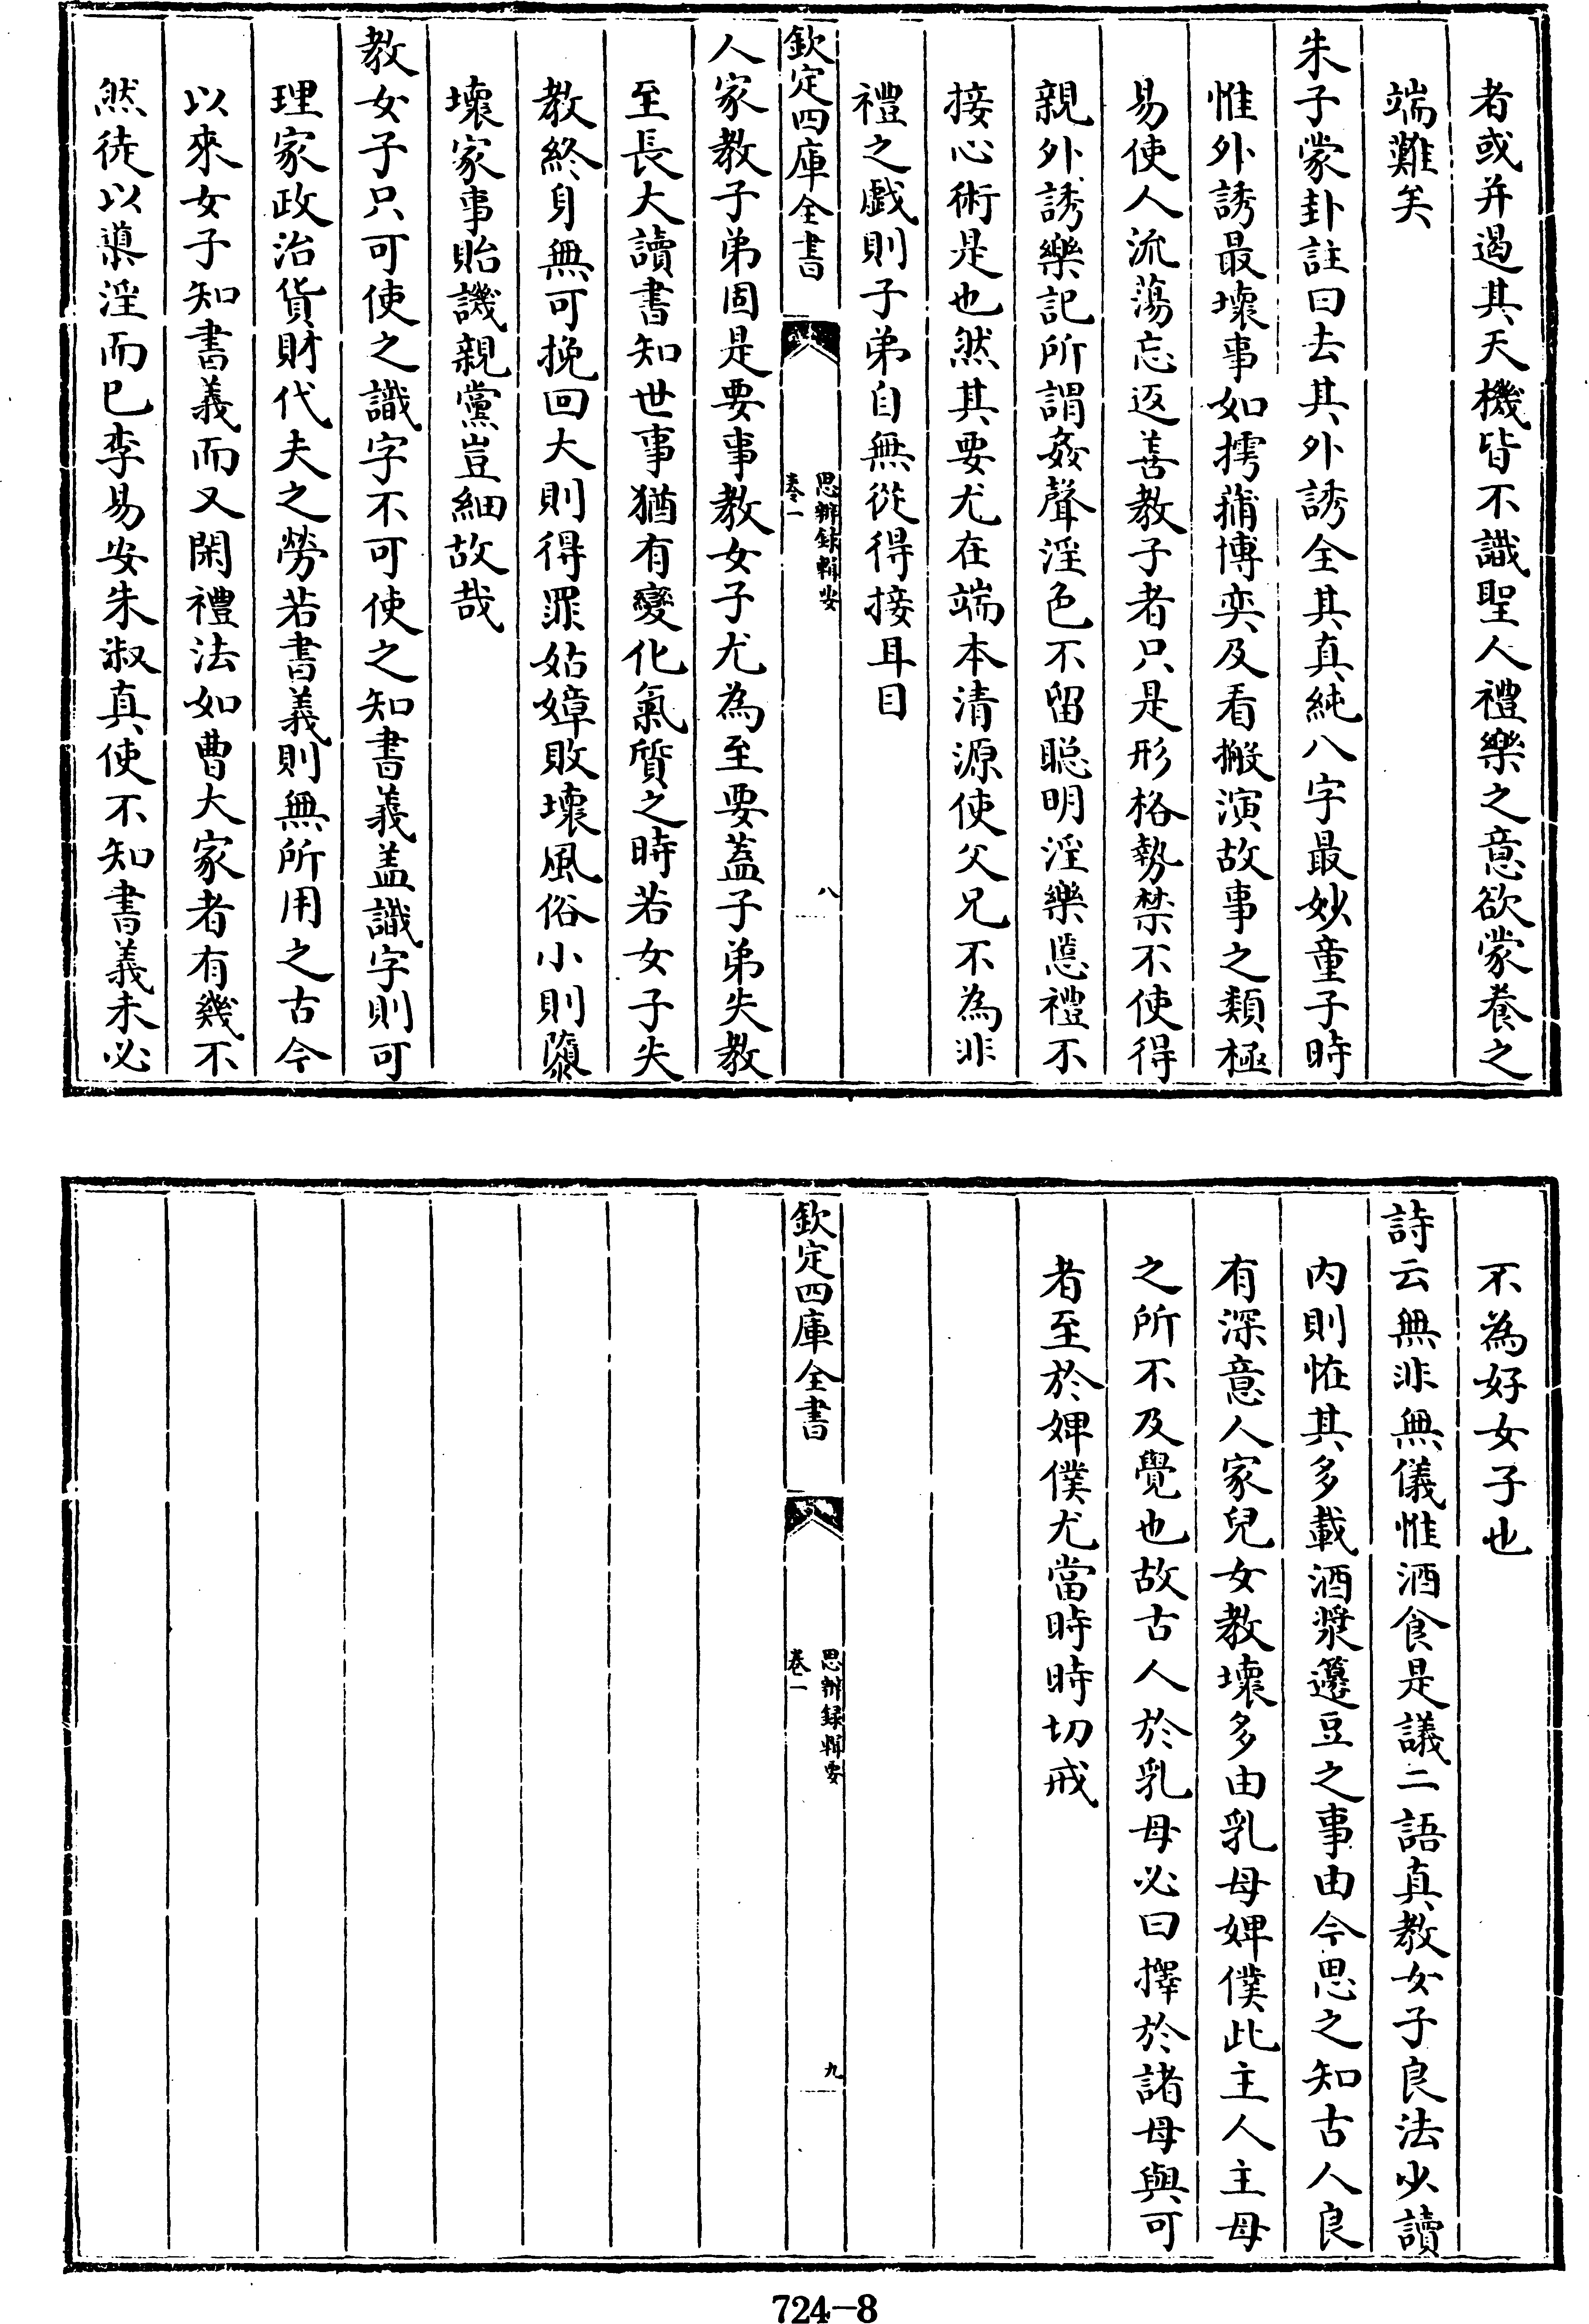 者或并遏其天機皆不識聖人禮樂之意欲蒙養之
端難矣
朱子蒙卦註曰去其外誘全其真純八字最妙童子時
惟外誘最壞事如摴蒱博奕及看搬演故事之類極
易使人流蕩忘返善教子者只是形格勢禁不使得
親外誘樂記所謂姦聲淫色不留聰明淫樂慝禮不
接心術是也然其要尤在端本清源使父兄不為非
禮之戲則子弟自無從得接耳目
欽定四庫全書
思辨錄輯要
卷一
八
人家教子弟固是要事教女子尤為至要蓋子弟失教
至長大讀書知世事猶有變化氣質之時若女子失
教終身無可挽回大則得罪姑嫜敗壞風俗小則隳
壞家事貽譏親黨豈細故哉
教女子只可使之識字不可使之知書義盖識字則可
理家政治貨財代夫之勞若書義則無所用之古今
以來女子知書義而又閑禮法如曹大家者有幾不
然徒以導淫而已李易安朱淑真使不知書義未必
不為好女子也
詩云無非無儀惟酒食是議二語真教女子良法少讀
内則恠其多載酒漿籩豆之事由今思之知古人良
有深意人家兒女教壞多由乳母婢僕此主人主母
之所不及覺也故古人於乳母必曰擇於諸母與可
者至於婢僕尤當時時切戒
欽定四庫全書
思辨録輯要
卷一
九
724-8